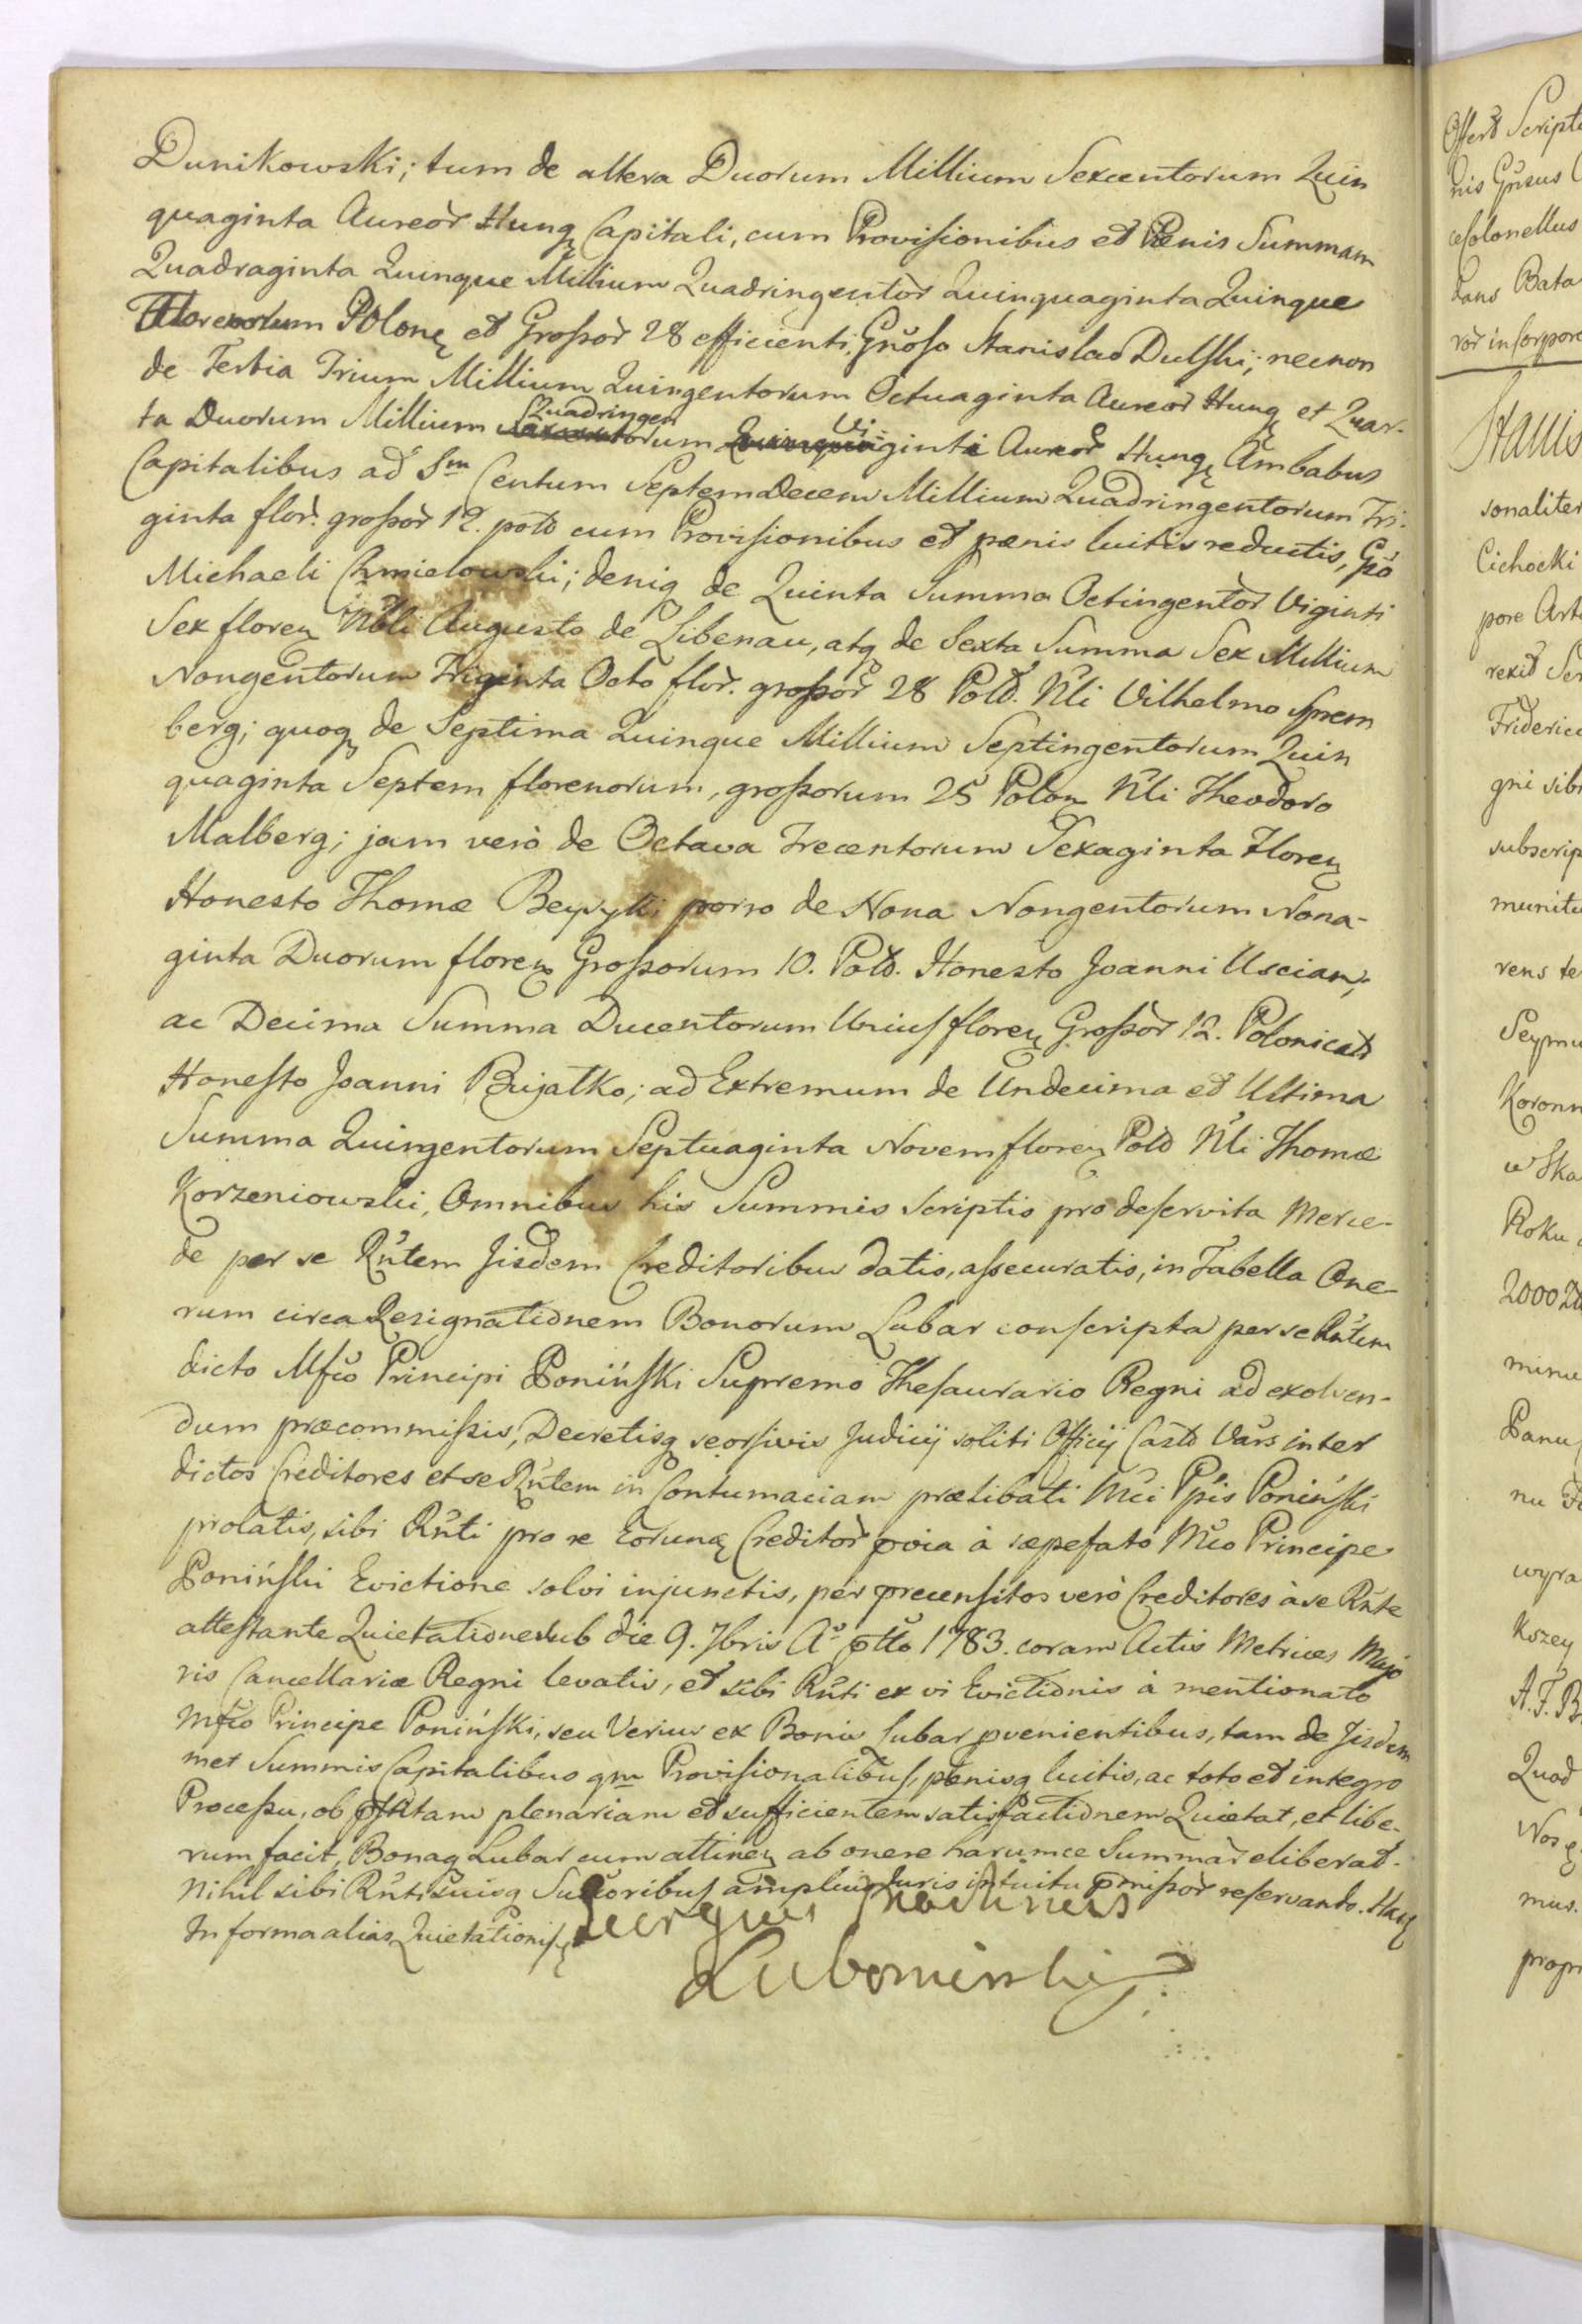 Dunikowski; tum de altera Duorum Millium Sexcentorum Quin
quaginta Aureor̃ Hung Capitali, cum Provisionibus et Pœnis Summam
Quadraginta Quinque Millium Quadringentor̃ Quinquaginta Quinque
Florenorum Polon et Groszor̃ 28 efficienti, Gñoso Stanislao Dulski; necnon
de Tertia Trium Millium Quingentorum Octuaginta Aureor̃ Hung et Quar-
ta Duorum Millium Quadringentorum Viginti Aureor̃ Hung Ambabus
Capitalibus ad Sm Centum Septem Decem Millium Quadringentorum Tri-
ginta flor. groszor̃ 12. pold cum Provisionibus et pœnis luitis reductis, Gso
Michaeli Chmielowski; deniq de Quinta Summa Octingentor̃ Viginti
Sex floren Nbli Augusto de Libenau, atq de Sexta Summa Sex Millium
Nongentorum Triginta Octo flor. groszor̃ 28 Pold. Nli Vilhelmo Sprem
berg; quoq de Septima Quinque Millium Septingentorum Quin
quaginta Septem florenorum, groszorum 25 Polon Nli Theodoro
Malberg; jam verò de Octava Trecentorum Sexaginta Floren
Honesto Thomæ porro de Nona Nongentorum Nona-
ginta Duorum floren Groszorum 10. Pold. Honesto Joanni Uscian,
ac Decima Summa Ducentorum Unius floren Groszor̃ 12. Polonical
Honesto Joanni Bujalko; ad Extremum de Undecima et Ultima
Summa Quingentorum Septuaginta Novem floren Pold Nli Thomæ
Korzeniowski, Omnibus his Summis scriptis pro deservita Merce-
de per se Rñtem Jisdem Creditoribus datis, assecuratis, in Tabella One-
rum circa Resignationem Bonorum Lubar conscripta per se Rñtem
dicto Mfco Principi Poniński Supremo Thesaurario Regni ad exolven-
dum præcommissis, Decretisq seorsivis Judicij soliti Officij Castr Vars inter
dictos Creditores et se Rñtem in Contumaciam prælibati Mci Ppis Poniński
prolatis, sibi Rñti pro re eorunq Creditor̃ pvia à sæpefato Mco Principe
Poniński Evictione solvi injunctis, per precensitos verò Creditores à se Rñte
attestante Quietatione sub die 9. 7bris Ao ptto 1783. coram Actis Metrices Majo
ris Cancellariæ Regni levatis, et sibi Rñti ex vi Evictionis à mentionato
Mfco Principe Poniński, seu Verius ex Bonis Lubar pvenientibus, tam de Jisdem
met Summis Capitalibus qm Provisionalibus, pœnisq luitis, ac toto et integro
Processu, ob pstitam plenariam et sufficientem satisfactionem Quietat, et libe-
rum facit, Bonaq Lubar cum attinen ab onere harumce Summar̃ eliberat.
Nihil sibi Rñti suisq Succoribus amplius Juris intuitu pmissor̃ reservando. Hanc
In forma alias Quietationis
Lubomirski

Offert Script
nis Gñsus
Colonellus
dans Bata
ror in Corpore
Stanis
sonaliter
Cichocki
pore Art
rexit Ser
Friderici
gni sibi
subscrip
munitu
rens te
Seymu
Koronn
w Ska
Roku
2000 Zł
minu
Panu
nu
wyra
kszey
A. F. B
Quod
Nos q
mus.
propr